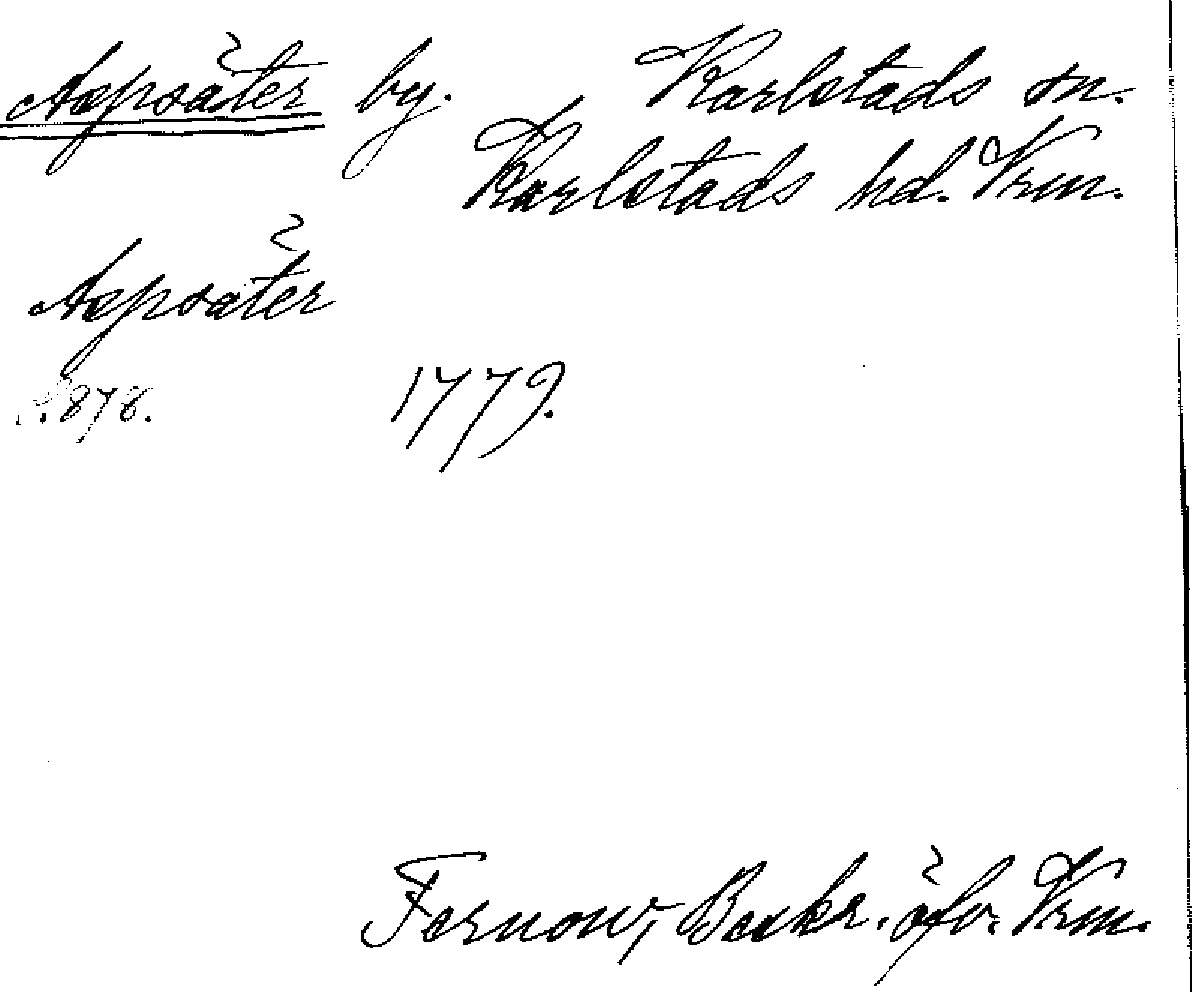 Aspsäter by. Karlstads sn.
Karlstads hd. Vrm.
Aspsäter
S. 878. 1779.
Fernow, Beskr. öfv. Vrm.